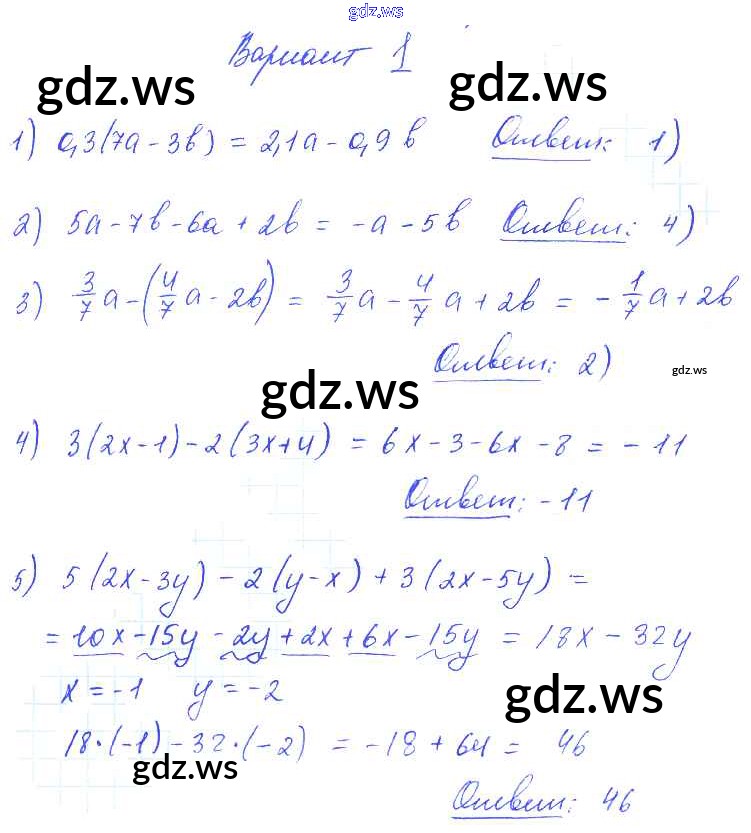 gdz.ws
Вариант 1
gdz.ws gdz.ws
1) 0,3(7a - 3b) = 2,1a - 0,9b Ответ: 1)
2) 5a - 7b - 6a + 2b = -a - 5b Ответ: 4)
3) 3/7 a - (4/7 a - 2b) = 3/7 a - 4/7 a + 2b = - 1/7 a + 2b
Ответ: 2) gdz.ws
gdz.ws
4) 3(2x - 1) - 2(3x + 4) = 6x - 3 - 6x - 8 = - 11
Ответ: -11
5) 5(2x - 3y) - 2(y - x) + 3(2x - 5y) =
= 10x - 15y - 2y + 2x + 6x - 15y = 18x - 32y
x = -1 y = -2 gdz.ws
18·(-1) - 32·(-2) = -18 + 64 = 46
gdz.ws
Ответ: 46